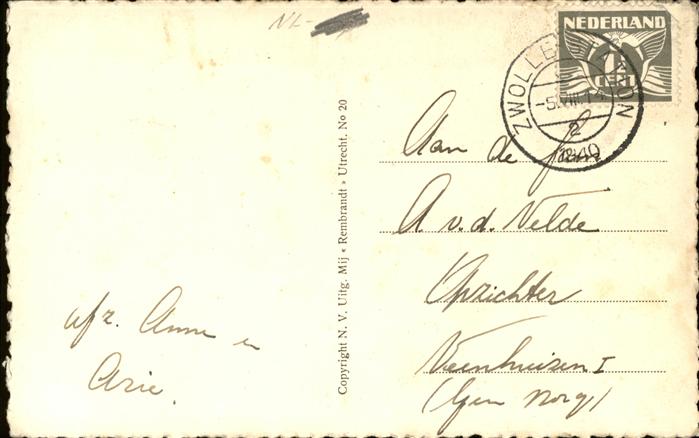 NL-
NEDERLAND
1½
CENT
ZWOLLE STATION
-5.VIII.14
2
1940
Aan de fam
A. v. d. Velde
Opzichter
Veenhuizen I
(Gem Norg)
afz. Anne en
Arie.
Copyright N. V. Uitg. Mij « Rembrandt » Utrecht. No 20